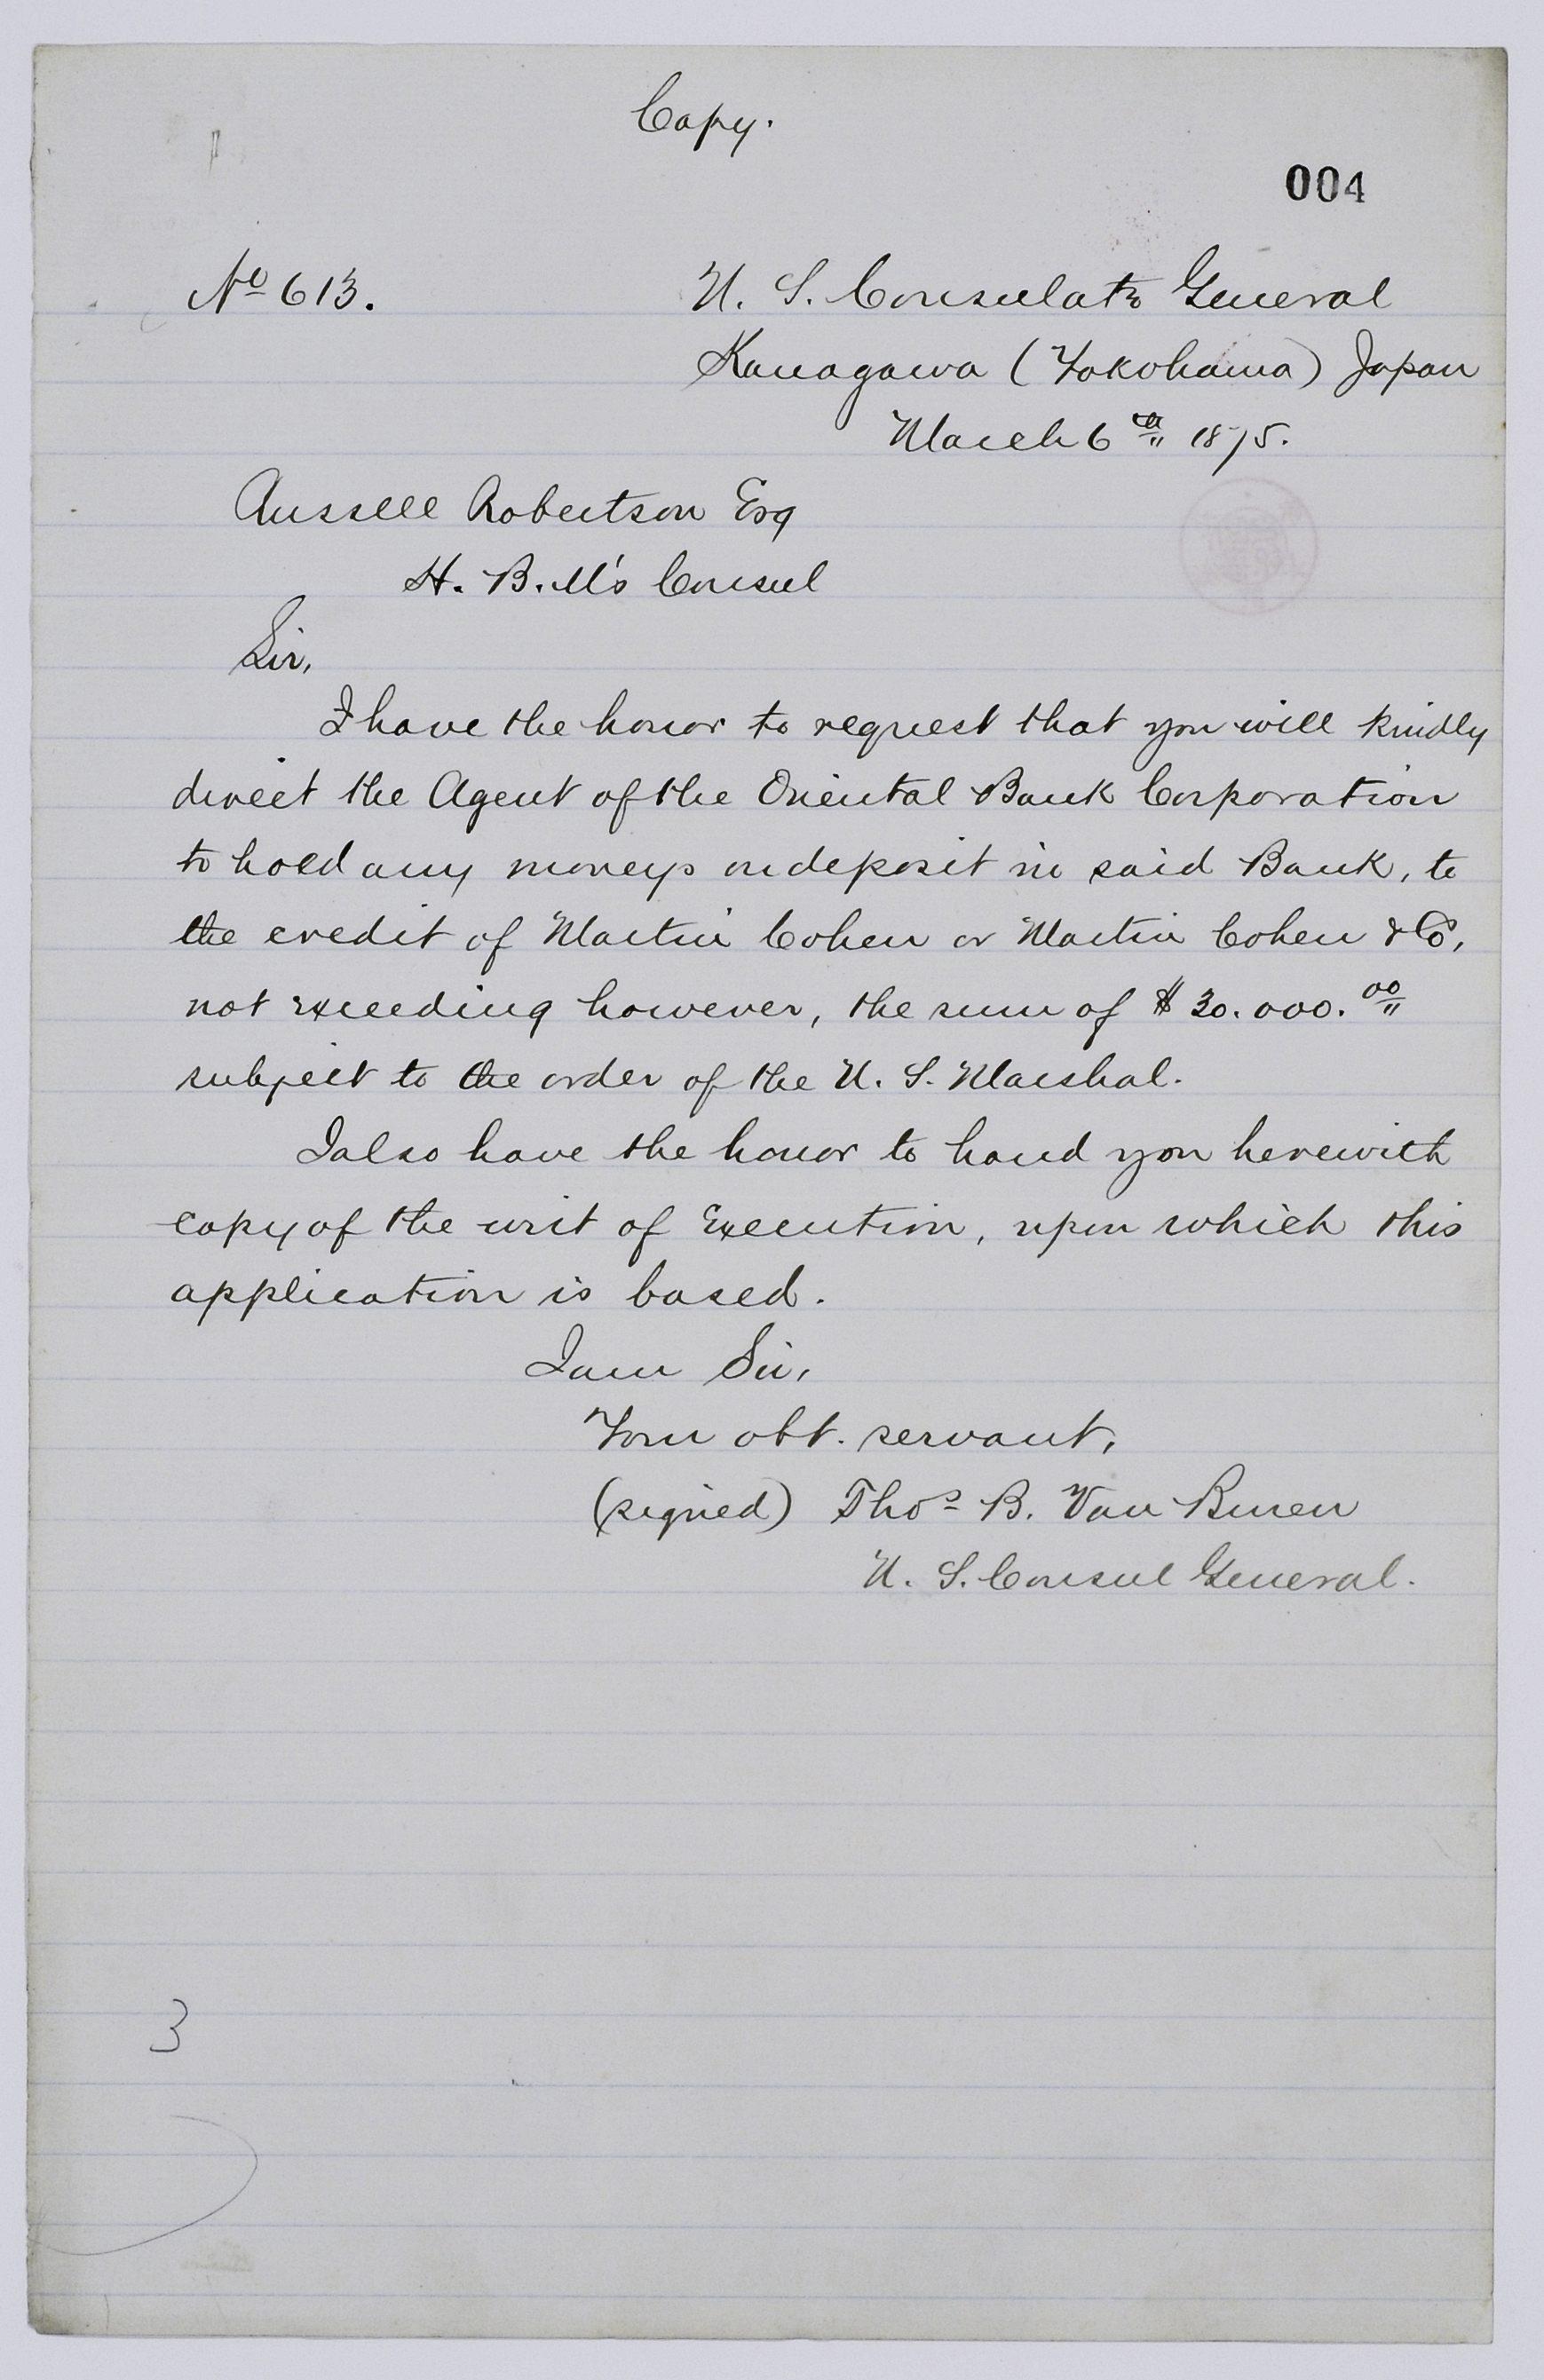 Copy.
004
No 613.
U. S. Consulate General
Kanagawa (Yokohama) Japan
March 6th 1875.
Russell Robertson Esq
H. B. M's Consul
Sir,
I have the honor to request that you will kindly
direct the Agent of the Oriental Bank Corporation
to hold any moneys on deposit in said Bank, to
the credit of Martin Cohen or Martin Cohen & Co,
not exceeding however, the sum of $ 30.000.00
subject to the order of the U. S. Marshal.
I also have the honor to hand you herewith
copy of the writ of Execution, upon which this
application is based.
I am Sir,
Your obt. servant,
(signed) Thos B. Van Buren
U. S. Consul General.
3